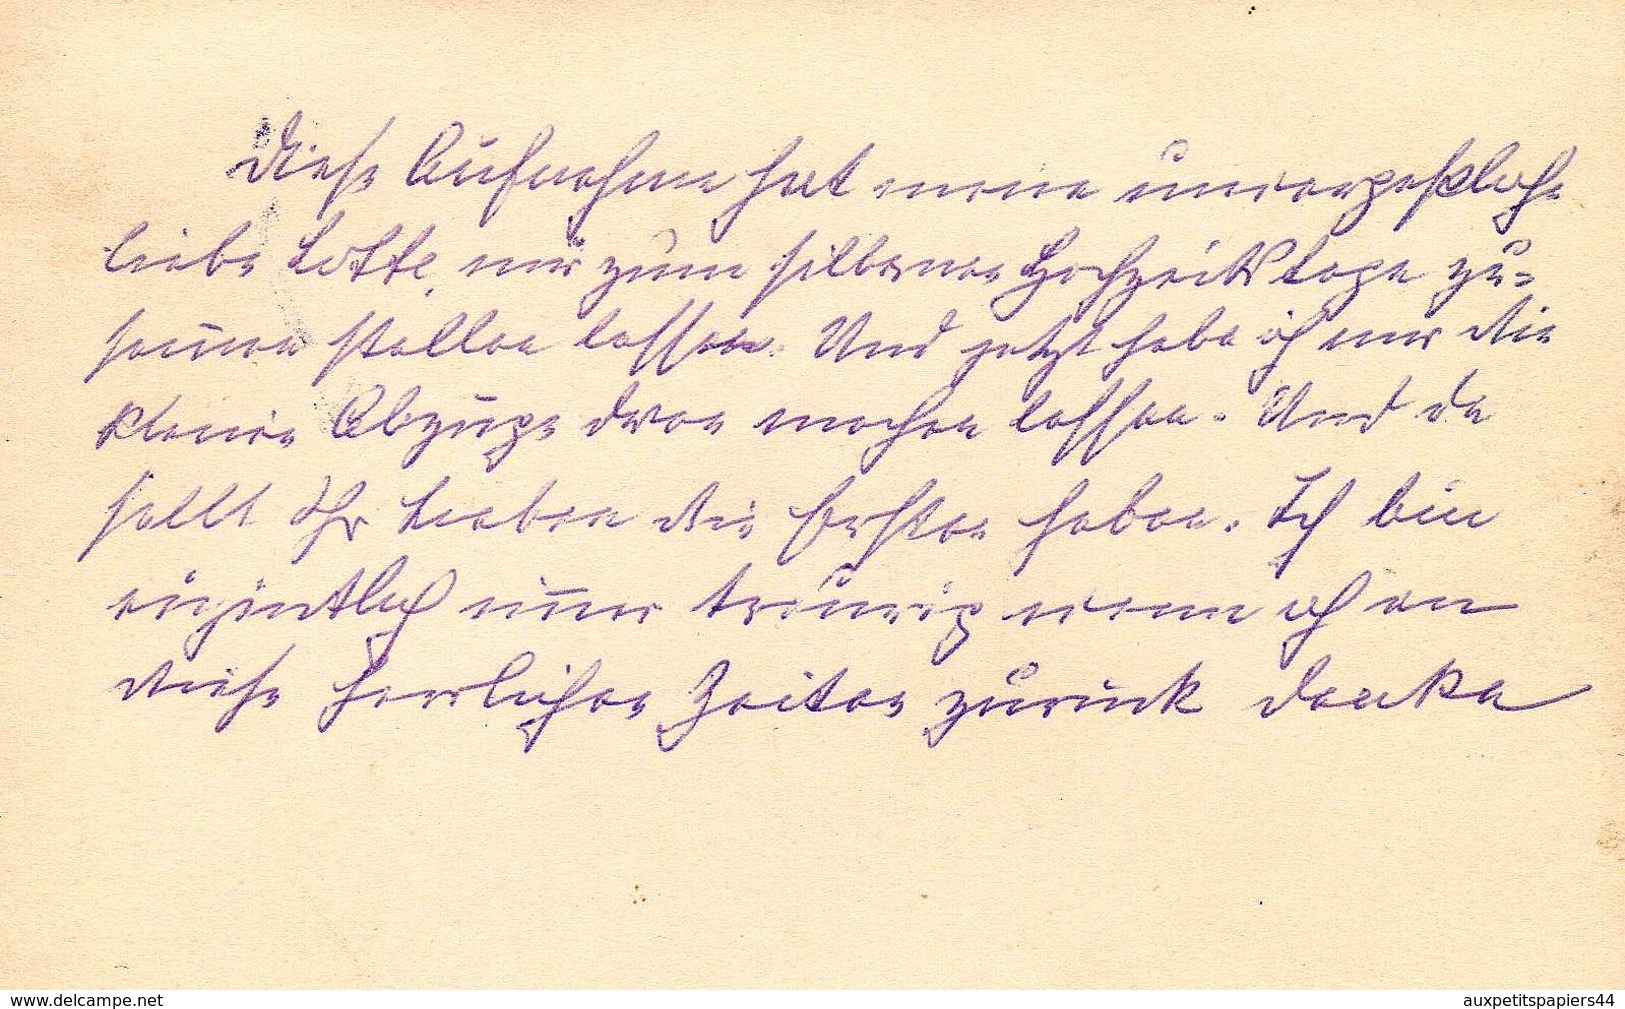 Diese Aufnahme hat meine unvergeßliche
liebe Lotte, mir zum silbernen Hochzeitstage zu=
sammen stellen lassen. Und jetzt habe ich mir die
kleinen Abzüge davon machen lassen. Und da
sollt Ihr Lieben die Ersten haben. Ich bin
eigentlich immer traurig wenn ich an
diese herrlichen Zeiten zurück denke
www.delcampe.net
auxpetitspapiers44